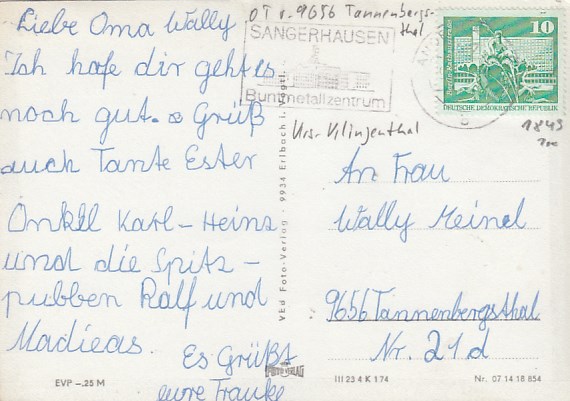 Liebe Oma Wally
Ich hofe dir geht es
noch gut. Grüß
auch Tante Ester
Onkll Karl-Heinz
und die Spitz-
pubben Ralf und
Madieas.
Es Grüßt
eure Frauke
EVP -.25 M
VEd Foto-Verlag · 9934 Erlbach i. Vogtl.
OT v. 9656 Tannenbergs-
thal
SANGERHAUSEN
Buntmetallzentrum
10
DEUTSCHE DEMOKRATISCHE REPUBLIK
Krs. Klingenthal
1843
An Frau
Wally Meinel
9656 Tannenbergsthal
Nr. 21d
FOTO-VERLAG
III 23 4 K 174
Nr. 07 14 18 854